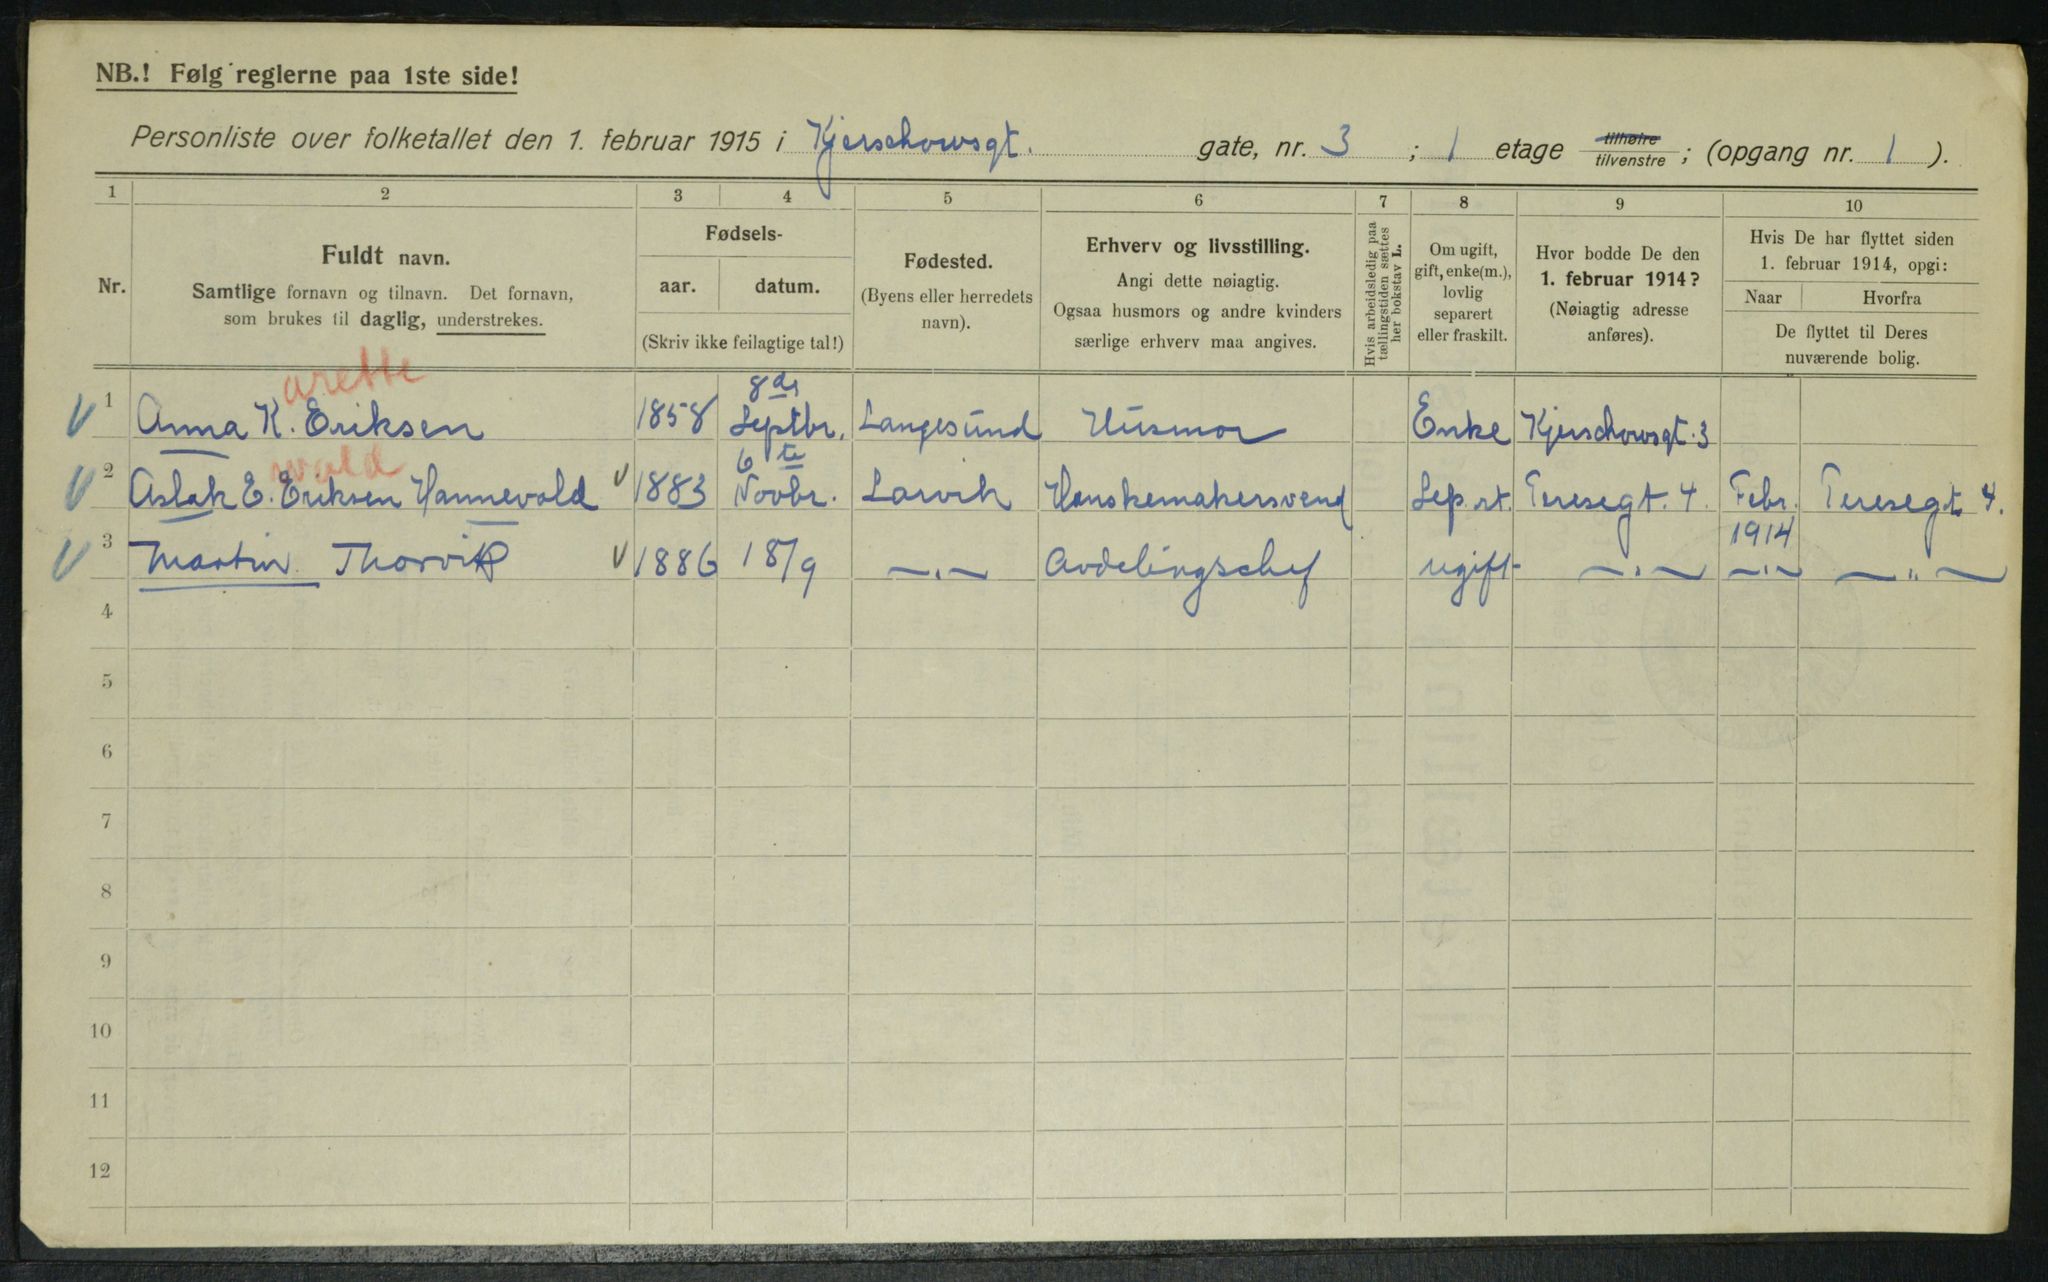 NB.! Følg reglerne paa 1ste side!
Personliste over folketallet den 1. februar 1915 i Kjerschowsgt. gate, nr. 3 ; 1 etage tilhøire tilvenstre ; (opgang nr. 1 ).
1 2 3 4 5 6 7 8 9 10
Nr.
Fuldt navn.
Samtlige fornavn og tilnavn. Det fornavn,
som brukes til daglig, understrekes.
Fødsels-
aar. datum.
(Skriv ikke feilagtige tal!)
Fødested.
(Byens eller herredets
navn).
Erhverv og livsstilling.
Angi dette nøiagtig.
Ogsaa husmors og andre kvinders
særlige erhverv maa angives.
Hvis arbeidsledig paa
tællingstiden sættes
her bokstav L.
Om ugift,
gift, enke(m.),
lovlig
separert
eller fraskilt.
Hvor bodde De den
1. februar 1914?
(Nøiagtig adresse
anføres).
Hvis De har flyttet siden
1. februar 1914, opgi:
Naar Hvorfra
De flyttet til Deres
nuværende bolig.
arette
1 Anna K. Eriksen 1858 8de Septbr. Langesund Husmor Enke Kjerschowsgt. 3
wald
2 Aslak E. Eriksen Hannevold 1883 6te Novbr. Larvik Hanskemakersvend Sep.rt. Teresegt. 4. Febr. 1914 Teresegt 4.
3 Martin Thorvik 1886 18/9 —"— Avdelingschef ugift —"— —"— —"—
4
5
6
7
8
9
10
11
12